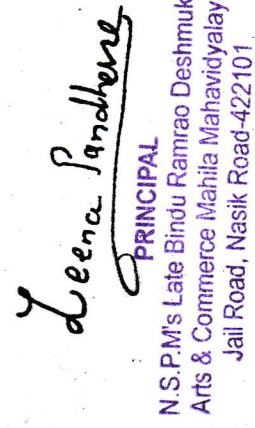 Leena Pandhare
PRINCIPAL
N.S.P.M's Late Bindu Ramrao Deshmuk
Arts & Commerce Mahila Mahavidyalay
Jail Road, Nasik Road-422101